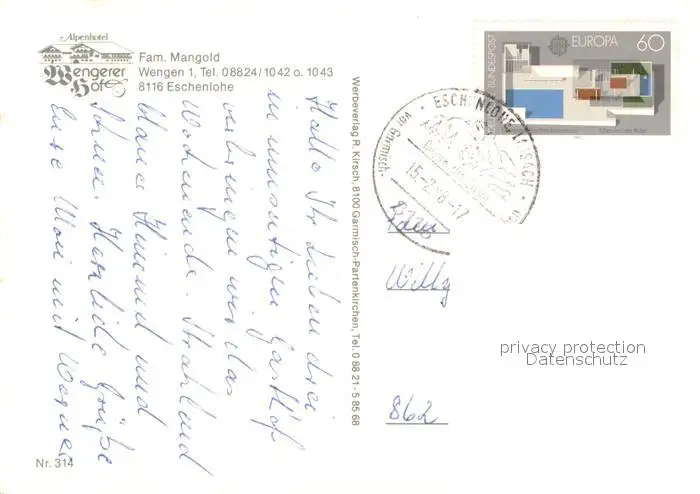 Alpenhotel
Wengerer
Hof
Fam. Mangold
Wengen 1, Tel. 08824/1042 o. 1043
8116 Eschenlohe
Hallo Ihr lieben drei
in unserem Gasthof
verbringen wir das
Wochenende. Strahlend
blauer Himmel und
Schnee. Herzliche Grüße
Eure Moni mit Werner
Nr. 314
Werbeverlag R. Kirsch, 8100 Garmisch-Partenkirchen, Tel. 0 88 21 - 5 85 68
DEUTSCHE BUNDESPOST
EUROPA 60
ESCHENLOHE
15.-2.-8-17
Willy
862
privacy protection
Datenschutz